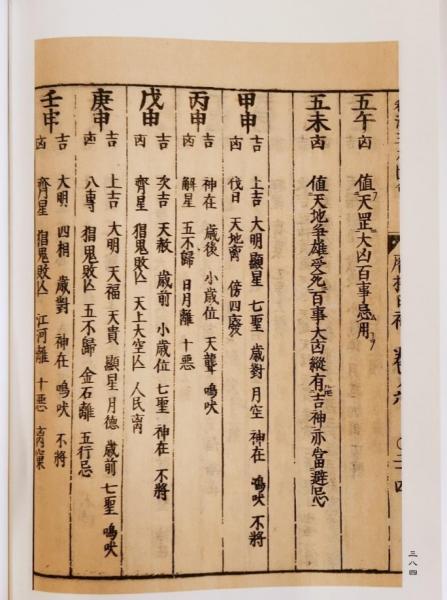 五午 凶 值天罡大凶百事忌用
五未 凶 值天地爭雄受死百事大凶縱有吉神亦當避忌
甲申 吉 上吉 大明 顯星 七聖 歲對 月空 神在 鳴吠 不將
凶 伐日 天地离 傍四廢
丙申 吉 神在 歲後 小歲位 天聾 鳴吠
凶 解星 五不歸 日月離 十惡
戊申 吉 次吉 天赦 歲前 小歲位 七聖 神在 不將
凶 齊星 猖鬼敗亾 天上大空亾 人民离
庚申 吉 上吉 大明 天福 天貴 顯星 月德 歲前 七聖 鳴吠
凶 八專 猖鬼敗亾 五不歸 金石離 五行忌
壬申 吉 大明 四相 歲對 神在 鳴吠 不將
凶 齊星 猖鬼敗亾 江河離 十惡
三八四